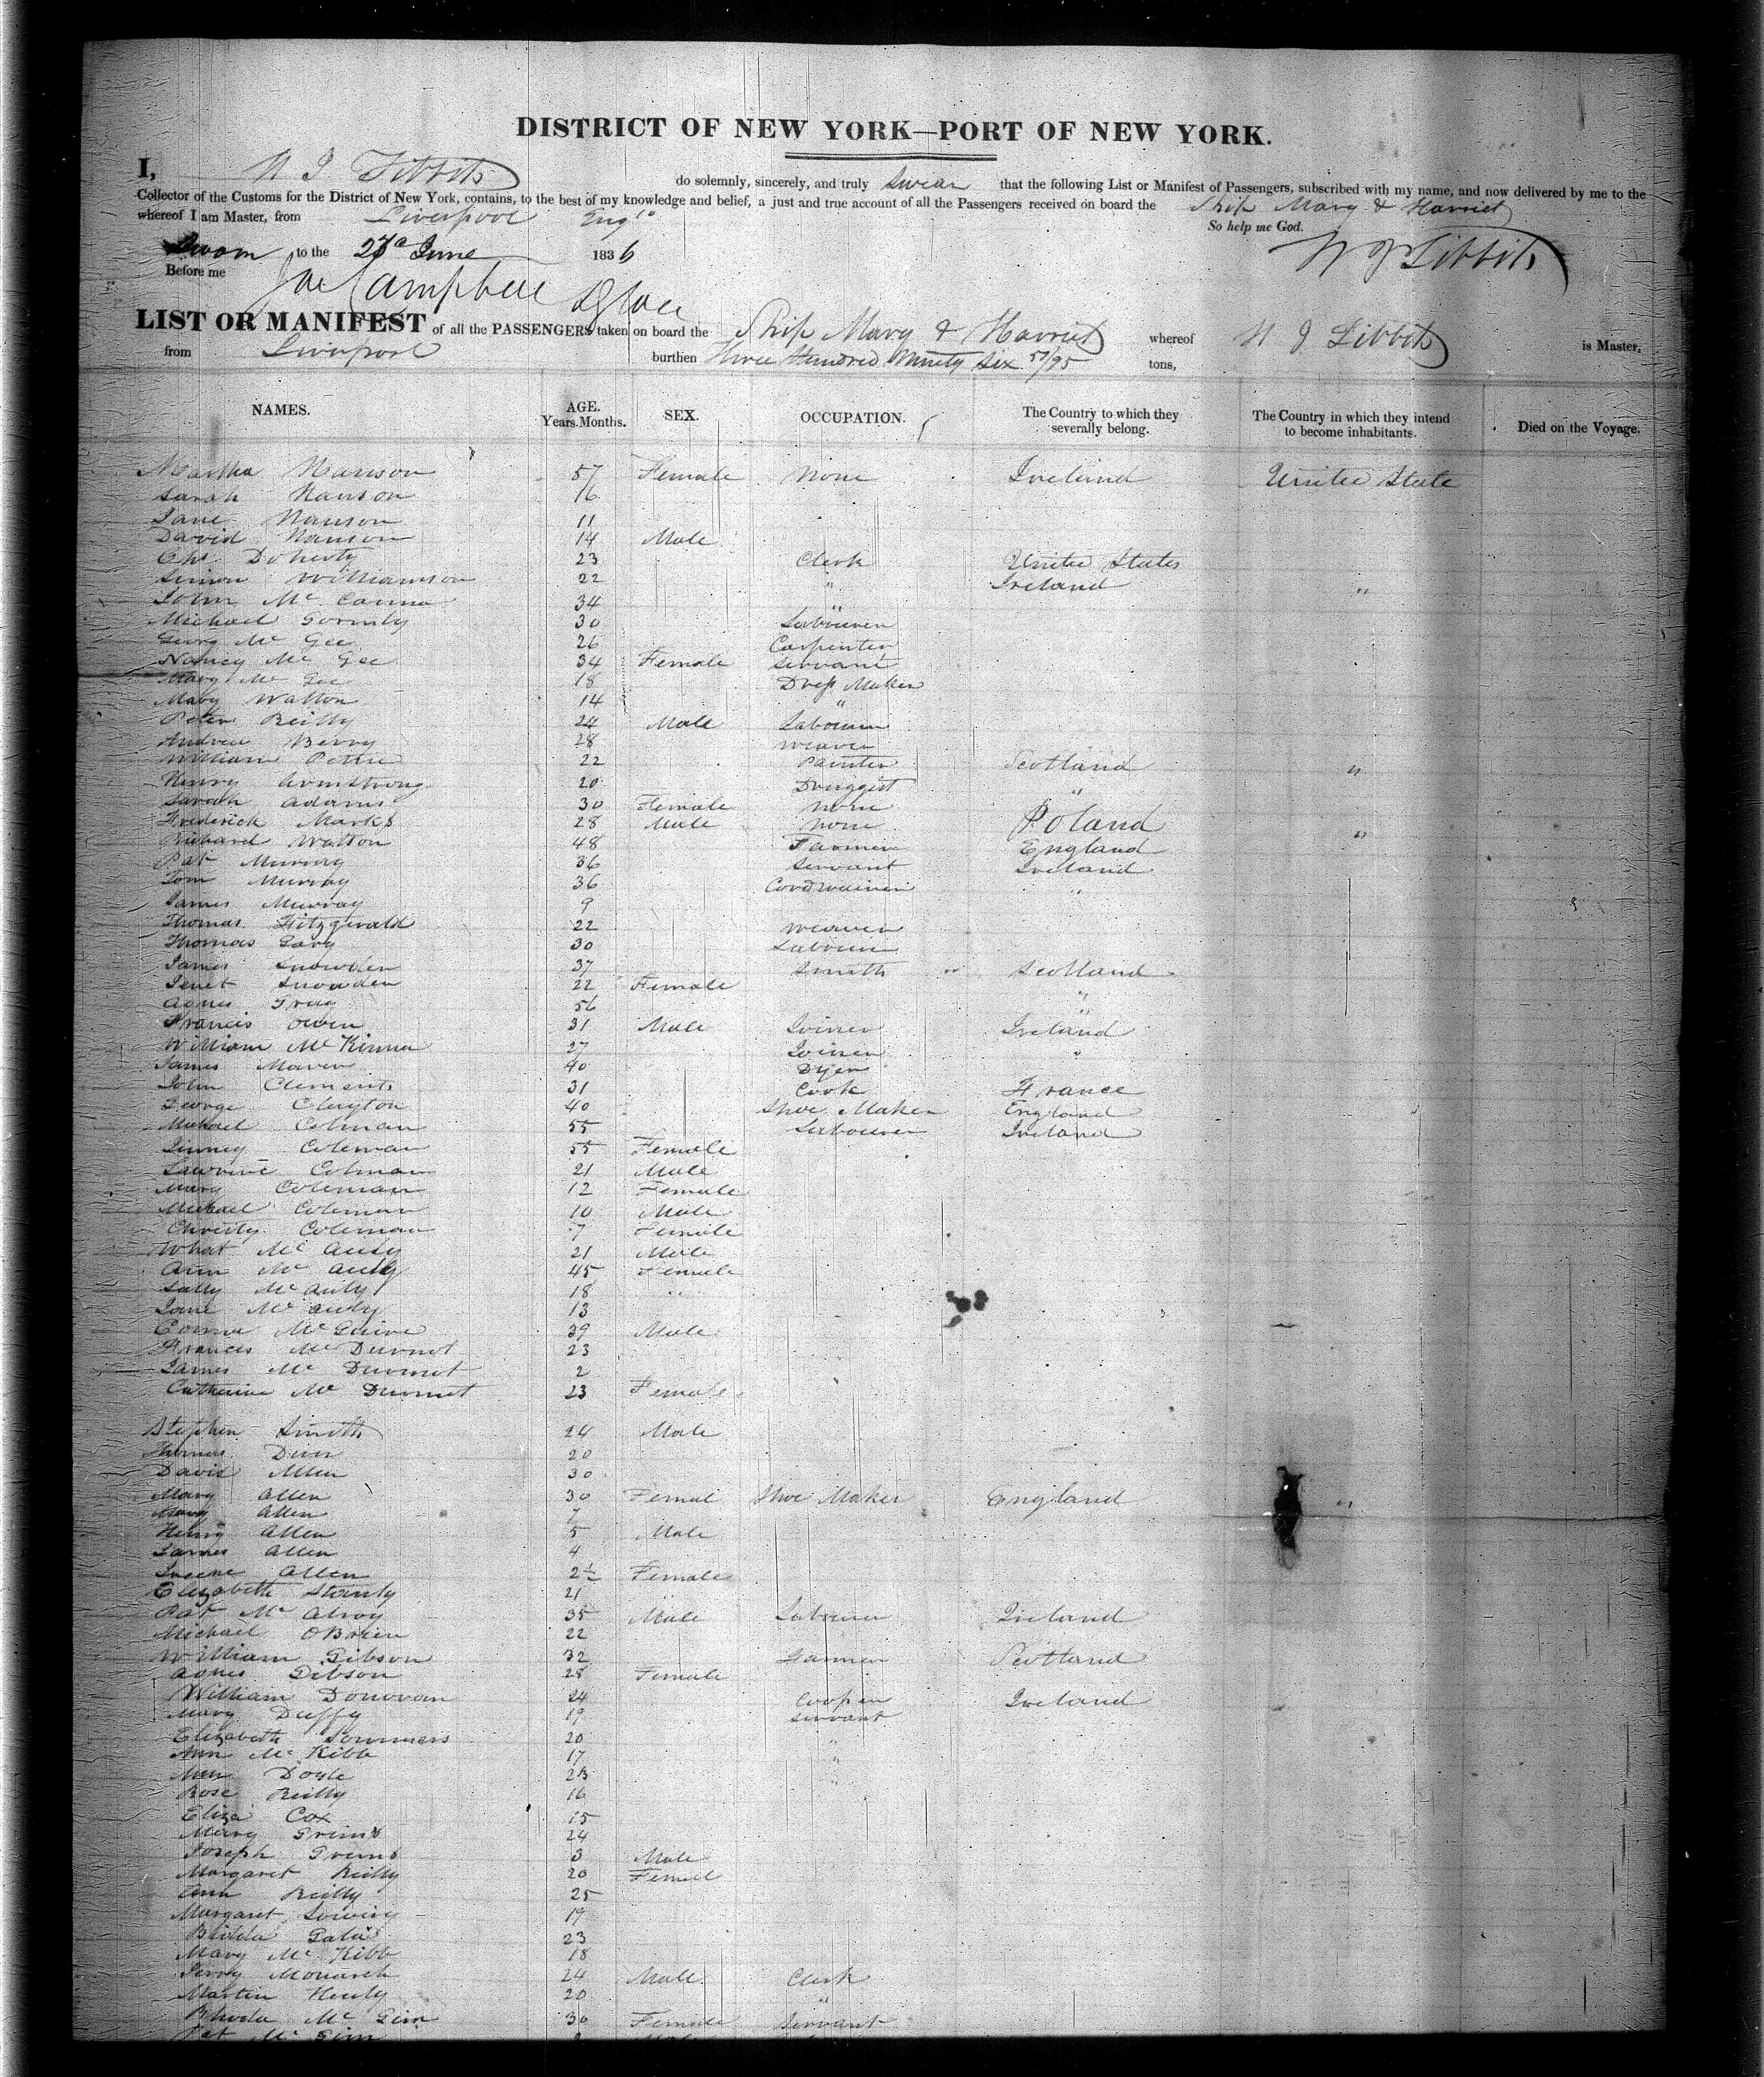 DISTRICT OF NEW YORK—PORT OF NEW YORK.
I, N J Tibbits do solemnly, sincerely, and truly Swear that the following List or Manifest of Passengers, subscribed with my name, and now delivered by me to the
Collector of the Customs for the District of New York, contains, to the best of my knowledge and belief, a just and true account of all the Passengers received on board the Ship Mary & Harriet
whereof I am Master, from Liverpool
So help me God.
Sworn to the June 1836 N J Tibbits
Before me Campbell
LIST OR MANIFEST of all the PASSENGERS taken on board the Ship Mary & Harriet whereof N J Tibbits is Master,
from Liverpool burthen Three Hundred Ninety Six tons,
NAMES. AGE. Years. Months. SEX. OCCUPATION. The Country to which they severally belong. The Country in which they intend to become inhabitants. Died on the Voyage.
Martha Hanson 57 Female None Ireland United State
Sarah Hanson 16
Jane Hanson 11
David Hanson 14 Male
Chs Doherty 23 Clerk United States
Simon Williamson 22 " Ireland "
John Mc 34 "
Michael Gormly 30 Labourer
Georg Mc Gee 26 Carpenter
Nancy Mc Gee 34 Female Servant
Mary Mc Gee 18 Dress Maker
Mary Watton 14 "
Peter Reilly 24 Male Labourer
Andrew Berry 28 Weaver
William Pettie 22 Painter Scotland "
Henry Armstrong 20 Druggist
Sarah Adams 30 Female None "
Frederick Marks 28 Male None Poland
Richard Watton 48 Farmer England "
Pat Murray 36 Servant Ireland
Tom Murray 36 Cordwainer "
James Murray 9
Thomas Fitzgerald 22 Weaver
Thomas 30 Labourer
James Snowden 37 Smith Scotland
Jenet Snowden 22 Female "
Agnes 56 "
Francis Owen 31 Male Joiner Ireland
William Mc Kinna 27 Joiner "
James 40 Dyer
John Clements 31 Cook France
George Clayton 40 Shoe Maker England
Michael Colman 55 Labourer Ireland
Coleman 55 Female
Lawrence Colman 21 Male
Mary Coleman 12 Female
Michael Coleman 10 Male
Coleman 7 Female
Mc 21 Male
Ann Mc 45 Female
Sally Mc 18
Jane Mc 13
Mc Guire 39 Male
Francis Mc Durmot 23
James Mc Durmot 2
Catherine Mc Durmot 23 Female
Stephen Smith 24 Male
Thomas 20
David Allen 30
Mary Allen 30 Femal Shoe Maker England "
Mary Allen 7
Henry Allen 5 Male
James Allen 4
Allen 2½ Female
Elizabeth Stanly 21
Pat Mc Alroy 35 Male Labourer Ireland
Michael OBrien 22
William Gibson 32 Scotland
Agnes Gibson 28 Female
William Donovan 24 Cooper Ireland
Mary Duffy 19 Servant
Elizabeth Sommers 20 "
Ann Mc Kibb 17 "
Doyle 23 "
Rose Reilly 16
Eliza Cox 15
Mary Grims 24
Joseph Grims 3 Male
Margaret Reilly 20 Femal
Ann Reilly 25
Margaret 19
23
Mary Mc Kibb 18
Monarch 24 Male Clerk
Martin Henly 20 "
Mc Ginn 30 Female Servant
Pat Mc Ginn